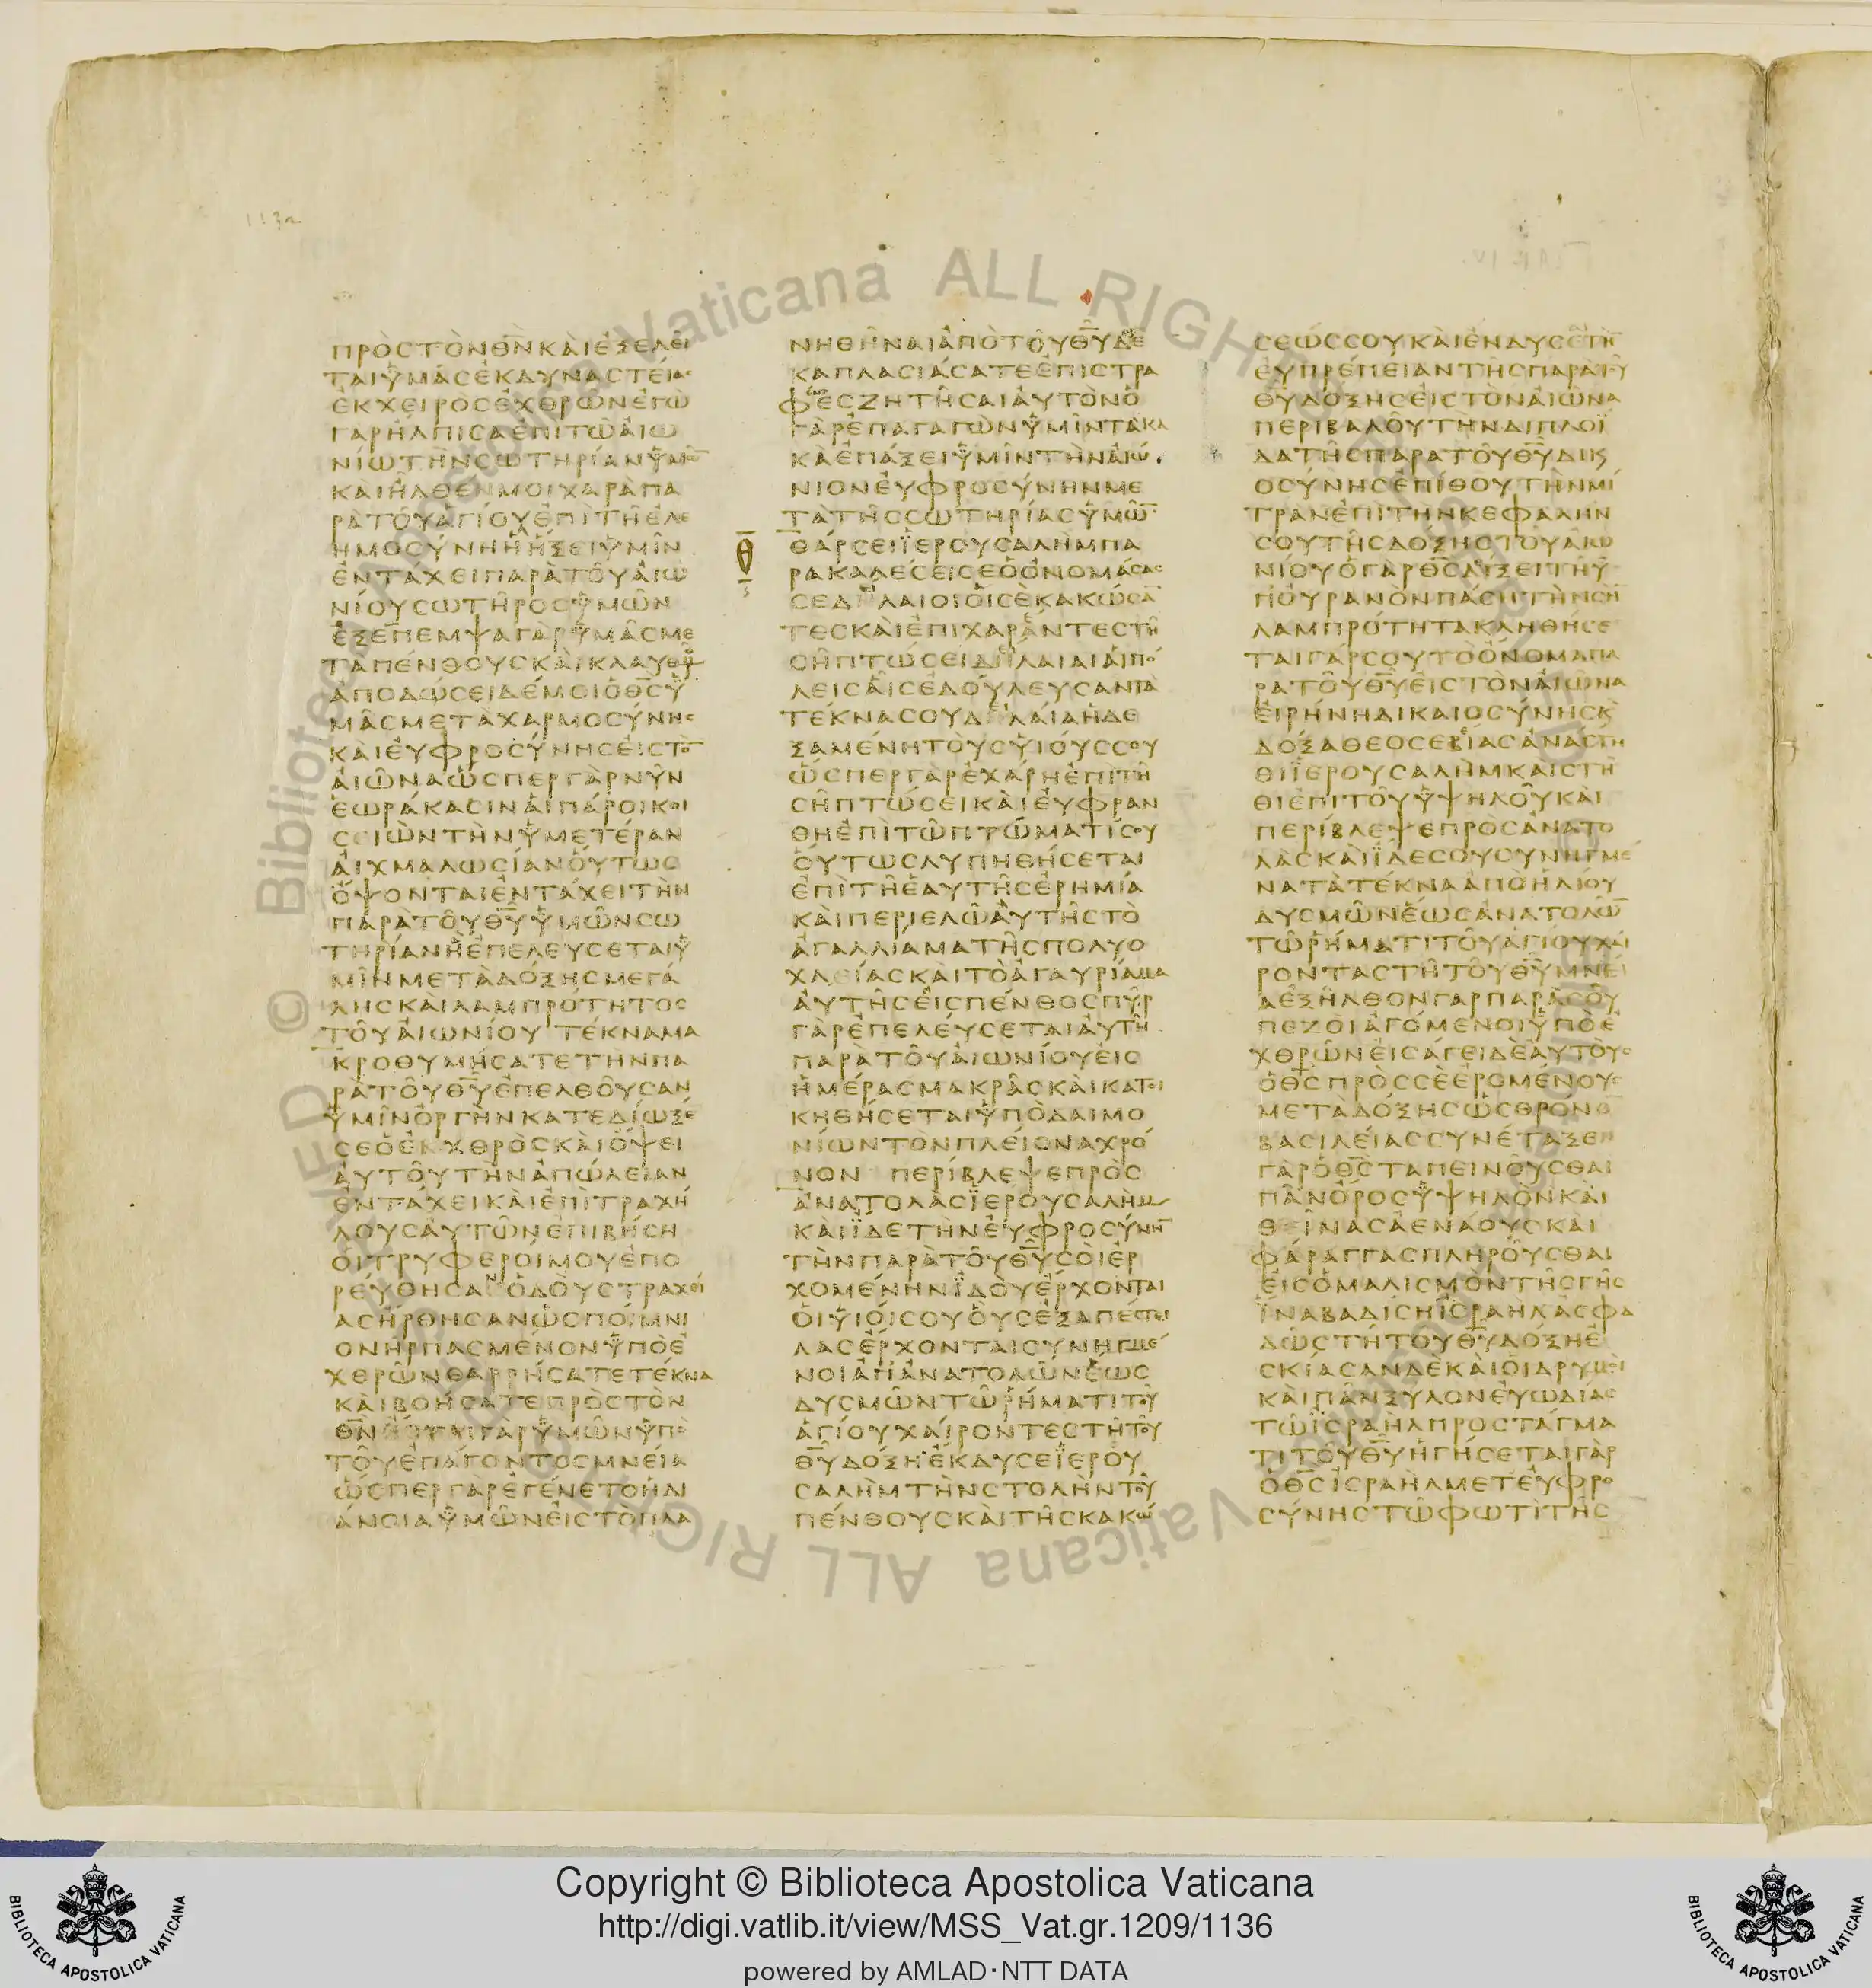 113a
ΠΡΟΣΤΟΝΘΝΚΑΙΕΞΕΛΕΙ
ΤΑΙΥΜΑΣΕΚΔΥΝΑΣΤΕΙΑΣ
ΕΚΧΕΙΡΟΣΕΧΘΡΩΝΕΓΩ
ΓΑΡΗΛΠΙΣΑΕΠΙΤΩΑΙΩ
ΝΙΩΤΗΝΣΩΤΗΡΙΑΝΥΜΩ̅
ΚΑΙΗΛΘΕΝΜΟΙΧΑΡΑΠΑ
ΡΑΤΟΥΑΓΙΟΥΕΠΙΤΗΕΛΕ
ΗΜΟΣΥΝΗΗΗΞΕΙΥΜΙΝ
ΕΝΤΑΧΕΙΠΑΡΑΤΟΥΑΙΩ
ΝΙΟΥΣΩΤΗΡΟΣΥΜΩΝ
ΕΞΕΠΕΜΨΑΓΑΡΥΜΑΣΜΕ
ΤΑΠΕΝΘΟΥΣΚΑΙΚΛΑΥΘΜΟΥ
ΑΠΟΔΩΣΕΙΔΕΜΟΙΟΘΣΥ
ΜΑΣΜΕΤΑΧΑΡΜΟΣΥΝΗΣ
ΚΑΙΕΥΦΡΟΣΥΝΗΣΕΙΣΤΟ̅
ΑΙΩΝΑΩΣΠΕΡΓΑΡΝΥΝ
ΕΩΡΑΚΑΣΙΝΑΙΠΑΡΟΙΚΟΙ
ΣΕΙΩΝΤΗΝΥΜΕΤΕΡΑΝ
ΑΙΧΜΑΛΩΣΙΑΝΟΥΤΩΣ
ΟΨΟΝΤΑΙΕΝΤΑΧΕΙΤΗΝ
ΠΑΡΑΤΟΥΘΥΥΜΩΝΣΩ
ΤΗΡΙΑΝΗΕΠΕΛΕΥΣΕΤΑΙΥ
ΜΙΝΜΕΤΑΔΟΞΗΣΜΕΓΑ
ΛΗΣΚΑΙΛΑΜΠΡΟΤΗΤΟΣ
ΤΟΥΑΙΩΝΙΟΥ ΤΕΚΝΑΜΑ
ΚΡΟΘΥΜΗΣΑΤΕΤΗΝΠΑ
ΡΑΤΟΥΘΥΕΠΕΛΘΟΥΣΑΝ
ΥΜΙΝΟΡΓΗΝΚΑΤΕΔΙΩΞΕ̅
ΣΕΟΕΚΧΘΡΟΣΚΑΙΟΨΕΙ
ΑΥΤΟΥΤΗΝΑΠΩΛΕΙΑΝ
ΕΝΤΑΧΕΙΚΑΙΕΠΙΤΡΑΧΗ
ΛΟΥΣΑΥΤΩΝΕΠΙΒΗΣΗ
ΟΙΤΡΥΦΕΡΟΙΜΟΥΕΠΟ
ΡΕΥΘΗΣΑΝΟΔΟΥΣΤΡΑΧΕΙ
ΑΣΗΡΘΗΣΑΝΩΣΠΟΙΜΝΙ
ΟΝΗΡΠΑΣΜΕΝΟΝΥΠΟΕ
ΧΘΡΩΝΘΑΡΡΗΣΑΤΕΤΕΚΝΑ
ΚΑΙΒΟΗΣΑΤΕΠΡΟΣΤΟΝ
ΘΝΕΣΤΑΙΓΑΡΥΜΩΝΥΠΟ
ΤΟΥΕΠΑΓΟΝΤΟΣΜΝΕΙΑ
ΩΣΠΕΡΓΑΡΕΓΕΝΕΤΟΗΔΙ
ΑΝΟΙΑΥΜΩΝΕΙΣΤΟΠΛΑ
ΝΗΘΗΝΑΙΑΠΟΤΟΥΘΥΔΕ
ΚΑΠΛΑΣΙΑΣΑΤΕΕΠΙΣΤΡΑ
ΦΕΣΖΗΤΗΣΑΙΑΥΤΟΝΟ
ΓΑΡΕΠΑΓΑΓΩΝΥΜΙΝΤΑΚΑ
ΚΑΕΠΑΞΕΙΥΜΙΝΤΗΝΑΙΩ
ΝΙΟΝΕΥΦΡΟΣΥΝΗΝΜΕ
ΤΑΤΗΣΣΩΤΗΡΙΑΣΥΜΩ̅
ΘΑΡΣΕΙΪΕΡΟΥΣΑΛΗΜΠΑ
ΡΑΚΑΛΕΣΕΙΣΕΟΟΝΟΜΑΣΑΣ
ΣΕΔΙΛΑΙΟΙΟΙΣΕΚΑΚΩΣΑ̅
ΤΕΣΚΑΙΕΠΙΧΑΡΕΝΤΕΣΤΗ
ΣΗΠΤΩΣΕΙΔΙΛΑΙΑΙΑΙΠΟ
ΛΕΙΣΑΙΣΕΔΟΥΛΕΥΣΑΝΤΑ
ΤΕΚΝΑΣΟΥΔΙΛΑΙΑΗΔΕ
ΞΑΜΕΝΗΤΟΥΣΥΙΟΥΣΣΟΥ
ΩΣΠΕΡΓΑΡΕΧΑΡΗΕΠΙΤΗ
ΣΗΠΤΩΣΕΙΚΑΙΕΥΦΡΑΝ
ΘΗΕΠΙΤΩΠΤΩΜΑΤΙΣΟΥ
ΟΥΤΩΣΛΥΠΗΘΗΣΕΤΑΙ
ΕΠΙΤΗΕΑΥΤΗΣΕΡΗΜΙΑ
ΚΑΙΠΕΡΙΕΛΩΑΥΤΗΣΤΟ
ΑΓΑΛΛΙΑΜΑΤΗΣΠΟΛΥΟ
ΧΛΕΙΑΣΚΑΙΤΟΑΓΑΥΡΙΑΜΑ
ΑΥΤΗΣΕΙΣΠΕΝΘΟΣΠΥΡ
ΓΑΡΕΠΕΛΕΥΣΕΤΑΙΑΥΤΗ
ΠΑΡΑΤΟΥΑΙΩΝΙΟΥΕΙΣ
ΗΜΕΡΑΣΜΑΚΡΑΣΚΑΙΚΑΤΟΙ
ΚΗΘΗΣΕΤΑΙΥΠΟΔΑΙΜΟ
ΝΙΩΝΤΟΝΠΛΕΙΟΝΑΧΡΟ
ΝΟΝ ΠΕΡΙΒΛΕΨΕΠΡΟΣ
ΑΝΑΤΟΛΑΣΪΕΡΟΥΣΑΛΗΜ
ΚΑΙΪΔΕΤΗΝΕΥΦΡΟΣΥΝΗ̅
ΤΗΝΠΑΡΑΤΟΥΘΥΣΟΙΕΡ
ΧΟΜΕΝΗΝΪΔΟΥΕΡΧΟΝΤΑΙ
ΟΙΥΙΟΙΣΟΥΟΥΣΕΞΑΠΕΣΤΕΙ
ΛΑΣΕΡΧΟΝΤΑΙΣΥΝΗΓΜΕ
ΝΟΙΑΠΑΝΑΤΟΛΩΝΕΩΣ
ΔΥΣΜΩΝΤΩΡΗΜΑΤΙΤΟΥ
ΑΓΙΟΥΧΑΙΡΟΝΤΕΣΤΗΤΟΥ
ΘΥΔΟΞΗ ΕΚΔΥΣΕΪΕΡΟΥ
ΣΑΛΗΜΤΗΝΣΤΟΛΗΝΤΟΥ
ΠΕΝΘΟΥΣΚΑΙΤΗΣΚΑΚΩ
ΣΕΩΣΣΟΥΚΑΙΕΝΔΥΣΕΤΗ̅
ΕΥΠΡΕΠΕΙΑΝΤΗΣΠΑΡΑΤΟΥ
ΘΥΔΟΞΗΣΕΙΣΤΟΝΑΙΩΝΑ
ΠΕΡΙΒΑΛΟΥΤΗΝΔΙΠΛΟΪ
ΔΑΤΗΣΠΑΡΑΤΟΥΘΥΔΙΚΑΙ
ΟΣΥΝΗΣΕΠΙΘΟΥΤΗΝΜΙ
ΤΡΑΝΕΠΙΤΗΝΚΕΦΑΛΗΝ
ΣΟΥΤΗΣΔΟΞΗΣΤΟΥΑΙΩ
ΝΙΟΥΟΓΑΡΘΣΔΙΞΕΙΤΗΥ
ΠΟΥΡΑΝΟΝΠΑΣΗΤΗΝΣΗ
ΛΑΜΠΡΟΤΗΤΑΚΛΗΘΗΣΕ
ΤΑΙΓΑΡΣΟΥΤΟΟΝΟΜΑΠΑ
ΡΑΤΟΥΘΥΕΙΣΤΟΝΑΙΩΝΑ
ΕΙΡΗΝΗΔΙΚΑΙΟΣΥΝΗΣΚ
ΔΟΞΑΘΕΟΣΕΒΙΑΣΑΝΑΣΤΗ
ΘΙΪΕΡΟΥΣΑΛΗΜΚΑΙΣΤΗ
ΘΙΕΠΙΤΟΥΥΨΗΛΟΥΚΑΙ
ΠΕΡΙΒΛΕΨΕΠΡΟΣΑΝΑΤΟ
ΛΑΣΚΑΙΪΔΕΣΟΥΣΥΝΗΓΜΕ
ΝΑΤΑΤΕΚΝΑΑΠΟΗΛΙΟΥ
ΔΥΣΜΩΝΕΩΣΑΝΑΤΟΛΩ̅
ΤΩΡΗΜΑΤΙΤΟΥΑΓΙΟΥΧΑΙ
ΡΟΝΤΑΣΤΗΤΟΥΘΥΜΝΕΙ
ΑΕΞΗΛΘΟΝΓΑΡΠΑΡΑΣΟΥ
ΠΕΖΟΙΑΓΟΜΕΝΟΙΥΠΟΕ
ΧΘΡΩΝΕΙΣΑΓΕΙΔΕΑΥΤΟΥΣ
ΟΘΣΠΡΟΣΣΕΕΡΟΜΕΝΟΥΣ
ΜΕΤΑΔΟΞΗΣΩΣΘΡΟΝΟ̅
ΒΑΣΙΛΕΙΑΣΣΥΝΕΤΑΞΕΝ
ΓΑΡΟΘΣΤΑΠΕΙΝΟΥΣΘΑΙ
ΠΑΝΟΡΟΣΥΨΗΛΟΝΚΑΙ
ΘΕΙΝΑΣΑΕΝΑΟΥΣΚΑΙ
ΦΑΡΑΓΓΑΣΠΛΗΡΟΥΣΘΑΙ
ΕΙΣΟΜΑΛΙΣΜΟΝΤΗΣΓΗΣ
ΪΝΑΒΑΔΙΣΗΪΣΡΑΗΛΑΣΦΑ
ΛΩΣΤΗΤΟΥΘΥΔΟΞΗΕ
ΣΚΙΑΣΑΝΔΕΚΑΙΟΙΔΡΥΜΟΙ
ΚΑΙΠΑΝΞΥΛΟΝΕΥΩΔΙΑΣ
ΤΩΪΣΡΑΗΛΠΡΟΣΤΑΓΜΑ
ΤΙΤΟΥΘΥΗΓΗΣΕΤΑΙΓΑΡ
ΟΘΣΙΣΡΑΗΛΜΕΤΕΥΦΡΟ
ΣΥΝΗΣΤΩΦΩΤΙΤΗΣ
© Biblioteca Apostolica Vaticana ALL RIGHTS RESERVED
Copyright © Biblioteca Apostolica Vaticana
http://digi.vatlib.it/view/MSS_Vat.gr.1209/1136
powered by AMLAD·NTT DATA
BIBLIOTECA APOSTOLICA VATICANA
BIBLIOTECA APOSTOLICA VATICANA